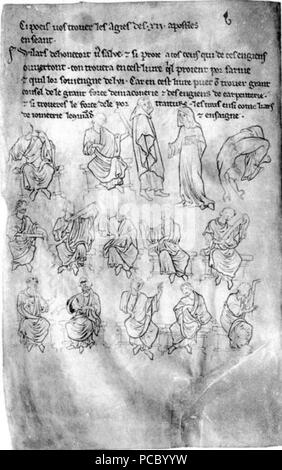 Ci poeis vos trover les agies des .xii. aposteles
en seant.
Wilars dehonecort v salve & si proie a tos ceus qui de ces engiens
ouverront con trovera en cest livre q'l proient por sarme
& quil lor soviengne de lui. Car en cest livre puet o' trover grant
consel de le grant force de maconerie & des engiens de carpenterie.
& si troveres le force de le portraiture
de iometrie
& ensaigne.
alamy
Image ID: PCBYYW
www.alamy.com